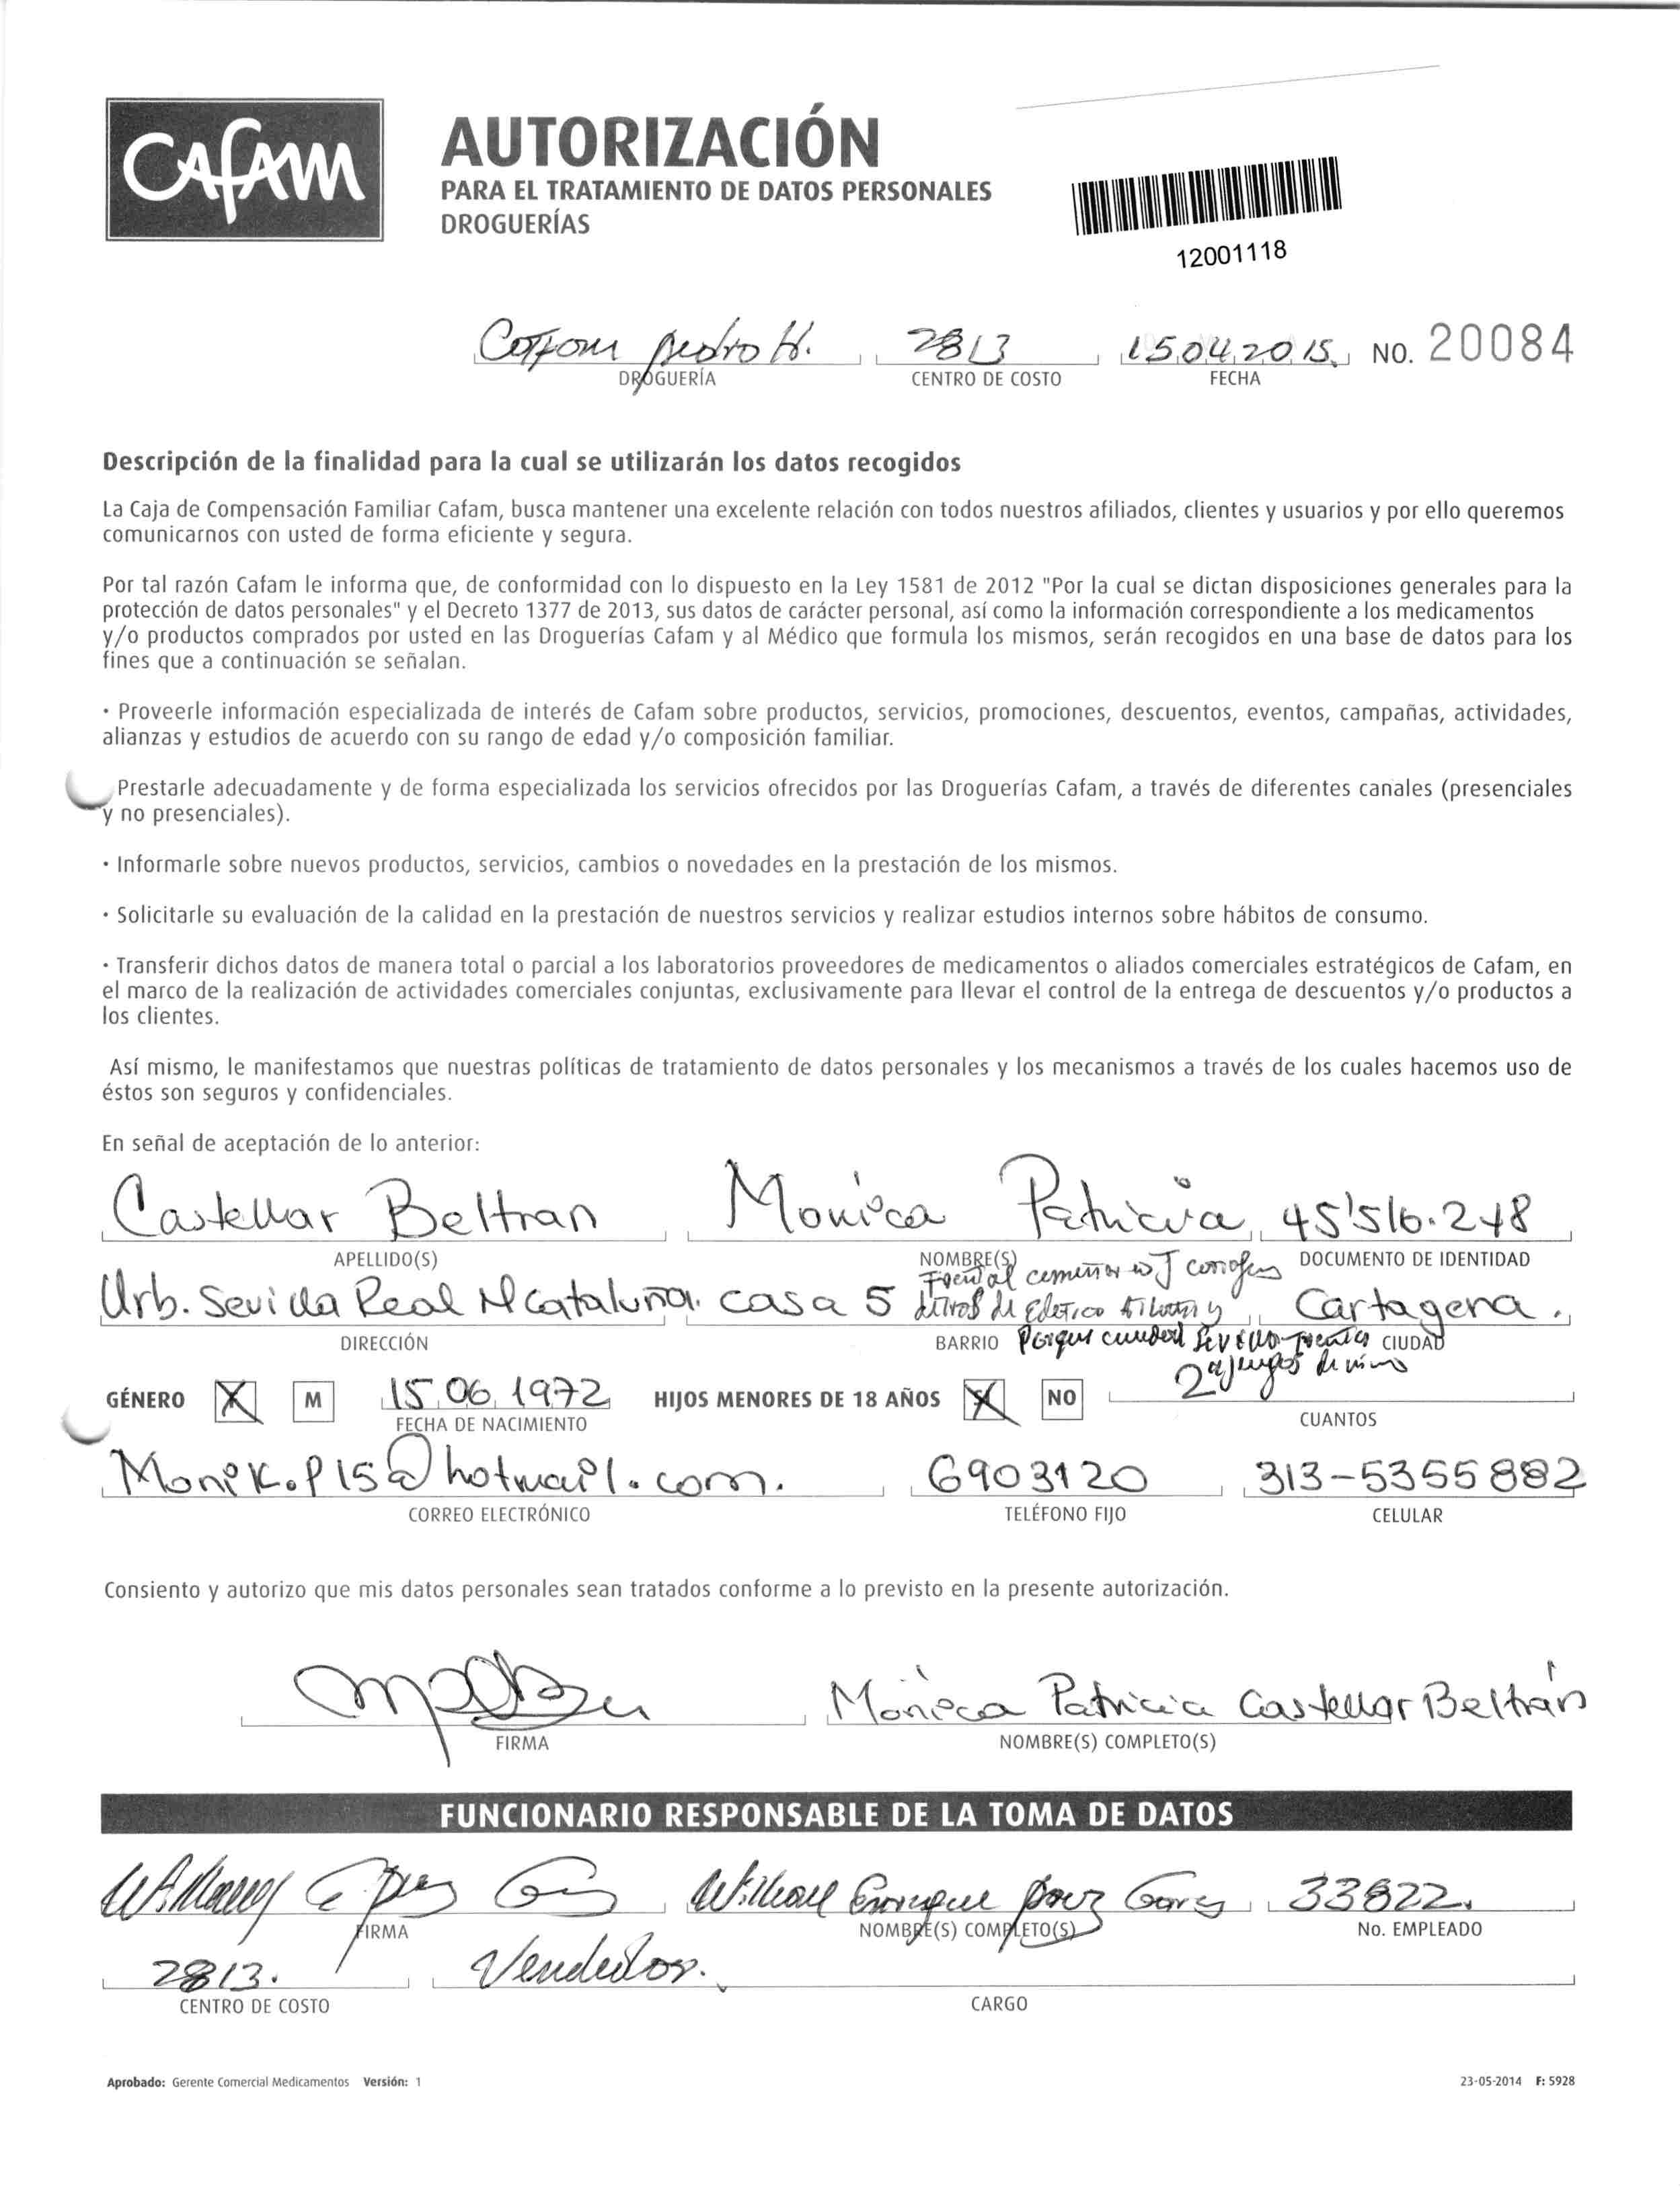 CAFAM
AUTORIZACIÓN
PARA EL TRATAMIENTO DE DATOS PERSONALES
DROGUERÍAS
12001118
pedro H. 2813 15.04.2015 NO. 20084
DROGUERÍA CENTRO DE COSTO FECHA
Descripción de la finalidad para la cual se utilizarán los datos recogidos
La Caja de Compensación Familiar Cafam, busca mantener una excelente relación con todos nuestros afiliados, clientes y usuarios y por ello queremos
comunicarnos con usted de forma eficiente y segura.
Por tal razón Cafam le informa que, de conformidad con lo dispuesto en la Ley 1581 de 2012 "Por la cual se dictan disposiciones generales para la
protección de datos personales" y el Decreto 1377 de 2013, sus datos de carácter personal, así como la información correspondiente a los medicamentos
y/o productos comprados por usted en las Droguerías Cafam y al Médico que formula los mismos, serán recogidos en una base de datos para los
fines que a continuación se señalan.
· Proveerle información especializada de interés de Cafam sobre productos, servicios, promociones, descuentos, eventos, campañas, actividades,
alianzas y estudios de acuerdo con su rango de edad y/o composición familiar.
Prestarle adecuadamente y de forma especializada los servicios ofrecidos por las Droguerías Cafam, a través de diferentes canales (presenciales
y no presenciales).
· Informarle sobre nuevos productos, servicios, cambios o novedades en la prestación de los mismos.
· Solicitarle su evaluación de la calidad en la prestación de nuestros servicios y realizar estudios internos sobre hábitos de consumo.
· Transferir dichos datos de manera total o parcial a los laboratorios proveedores de medicamentos o aliados comerciales estratégicos de Cafam, en
el marco de la realización de actividades comerciales conjuntas, exclusivamente para llevar el control de la entrega de descuentos y/o productos a
los clientes.
Así mismo, le manifestamos que nuestras políticas de tratamiento de datos personales y los mecanismos a través de los cuales hacemos uso de
éstos son seguros y confidenciales.
En señal de aceptación de lo anterior:
Castellar Beltran Monica Patricia 45'516.248
APELLIDO(S) NOMBRE(S) DOCUMENTO DE IDENTIDAD
Urb. Sevilla Real Cataluña. casa 5 Cartagena.
DIRECCIÓN BARRIO CIUDAD
GÉNERO X M 15.06.1972 HIJOS MENORES DE 18 AÑOS X NO 2
FECHA DE NACIMIENTO CUANTOS
Monik.p15@hotmail.com. 6903120 313-5355882
CORREO ELECTRÓNICO TELÉFONO FIJO CELULAR
Consiento y autorizo que mis datos personales sean tratados conforme a lo previsto en la presente autorización.
Monica Patricia Castellar Beltrán
FIRMA NOMBRE(S) COMPLETO(S)
FUNCIONARIO RESPONSABLE DE LA TOMA DE DATOS
Enrique 33822.
FIRMA NOMBRE(S) COMPLETO(S) No. EMPLEADO
2813. Vendedor.
CENTRO DE COSTO CARGO
Aprobado: Gerente Comercial Medicamentos Versión: 1 23-05-2014 F: 5928